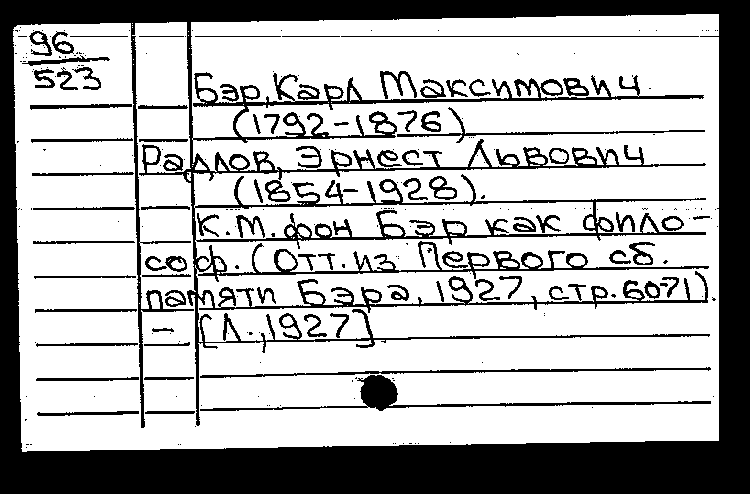 96
523
Бэр, Карл Максимович
(1792-1876)
Радлов, Эрнест Львович
(1854-1928).
К.М. фон Бэр как фило-
соф. (Отт. из Первого сб.
памяти Бэра, 1927, стр. 60-71).
— [Л., 1927]